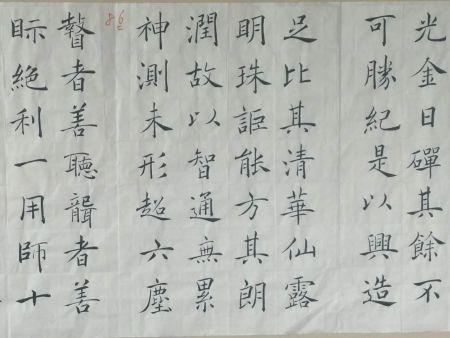 光金日磾其餘不
可勝紀是以興造
足比其清華仙露
明珠詎能方其朗
潤故以智通無累
神測未形超六塵
86
瞽者善聽聾者善
眎絕利一用師十